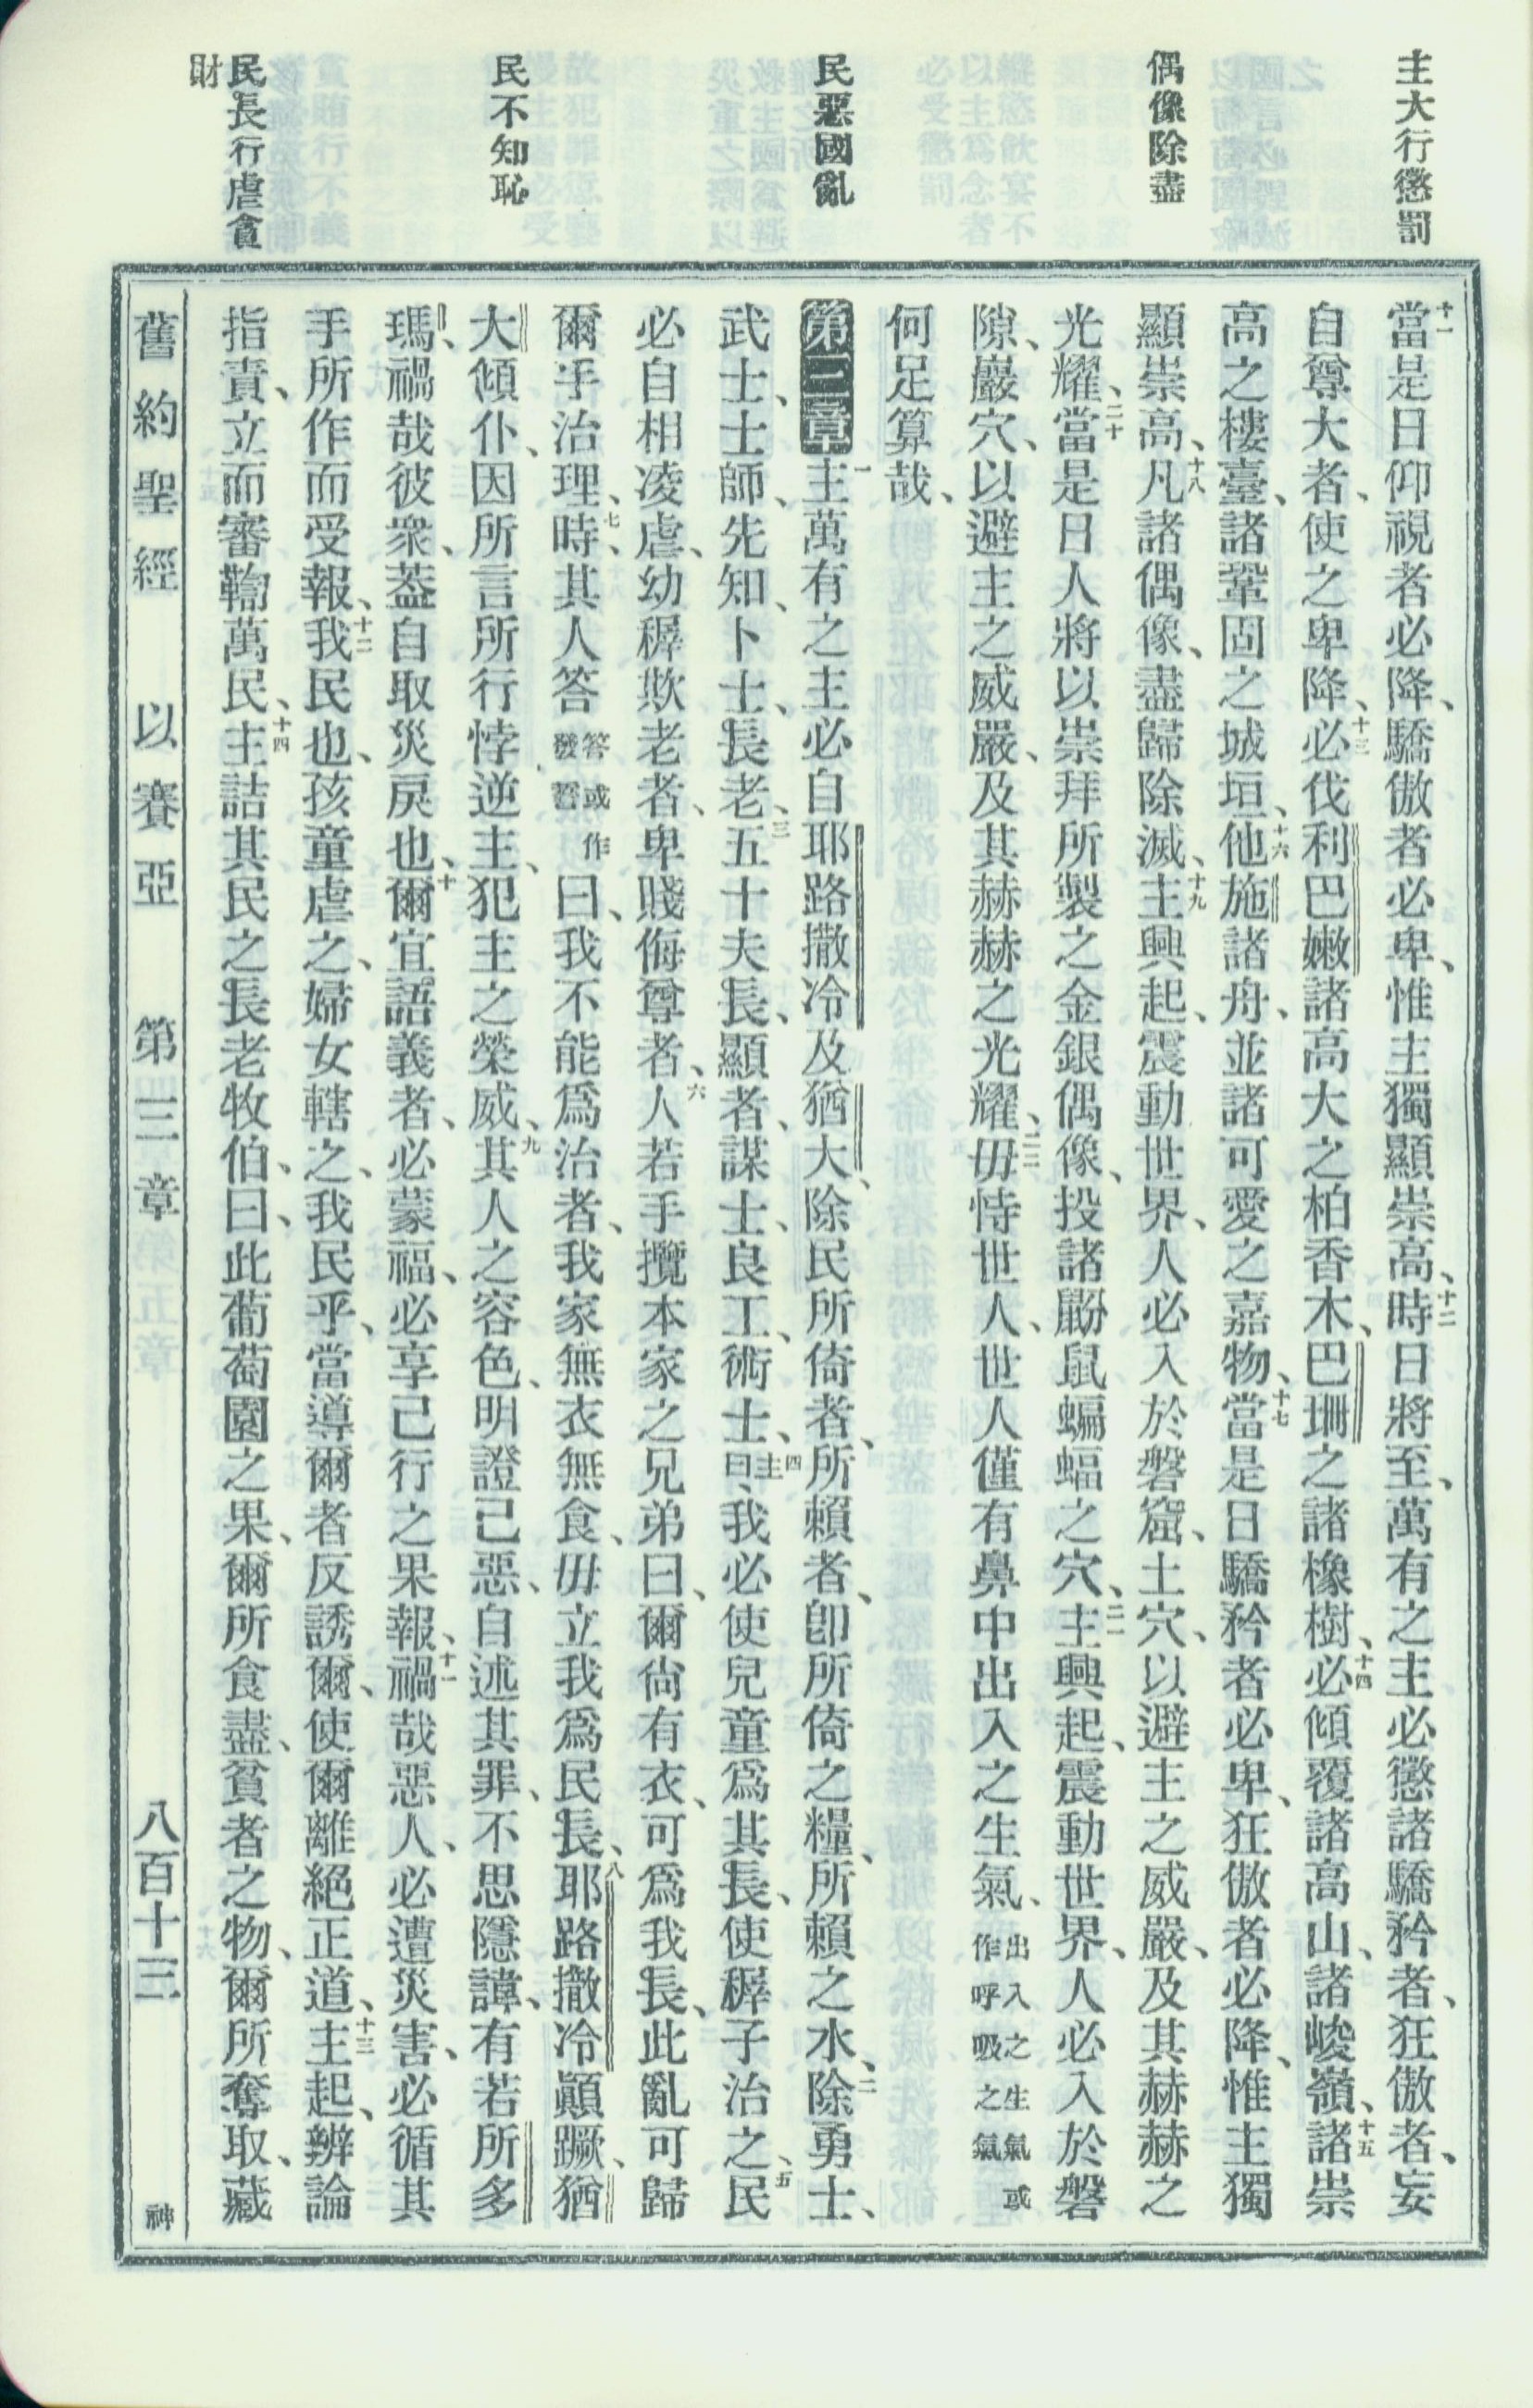 主大行懲罰
偶像除盡
民惡國亂
民不知恥
民長行虐貪
財
十一當是日仰視者必降、驕傲者必卑、惟主獨顯崇高、十二時日將至、萬有之主必懲諸驕矜者、狂傲者、妄
自尊大者、使之卑降、十三必伐利巴嫩諸高大之柏香木、巴珊之諸橡樹、十四必傾覆諸高山、諸峻嶺、十五諸崇
高之樓臺、諸鞏固之城垣、十六他施諸舟、並諸可愛之嘉物、十七當是日驕矜者必卑、狂傲者必降、惟主獨
顯崇高、十八凡諸偶像、盡歸除滅、十九主興起、震動世界、人必入於磐窟、土穴、以避主之威嚴、及其赫赫之
光耀、二十當是日人將以崇拜所製之金銀偶像、投諸鼢鼠蝙蝠之穴、二一主興起、震動世界、人必入於磐
隙、巖穴、以避主之威嚴、及其赫赫之光耀、二二毋恃世人、世人僅有鼻中出入之生氣、出入之生氣或作呼吸之氣
何足算哉、
第三章 一主萬有之主必自耶路撒冷及猶大、除民所倚者、所賴者、卽所倚之糧、所賴之水、二除勇士、
武士、士師、先知、卜士、長老、三五十夫長、顯者、謀士、良工、術士、四主曰、我必使兒童爲其長、使穉子治之、五民
必自相凌虐、幼穉欺老者、卑賤侮尊者、六人若手攬本家之兄弟曰、爾尙有衣、可爲我長、此亂可歸
爾手治理、七時、其人答答或作發誓曰、我不能爲治者、我家無衣無食、毋立我爲民長、八耶路撒冷顚蹶、猶
大傾仆、因所言所行悖逆主、犯主之榮威、九其人之容色、明證己惡、自述其罪、不思隱諱、有若所多
瑪、禍哉彼衆、葢自取災戾也、十爾宜語義者、必蒙福、必享己行之果報、十一禍哉惡人、必遭災害、必循其
手所作而受報、十二我民也、孩童虐之、婦女轄之、我民乎、當導爾者反誘爾、使爾離絕正道、十三主起、辨論
指責、立而審鞫萬民、十四主詰其民之長老牧伯、曰、此葡萄園之果、爾所食盡、貧者之物、爾所奪取、藏
舊約聖經 以賽亞 第三章 八百十三 神